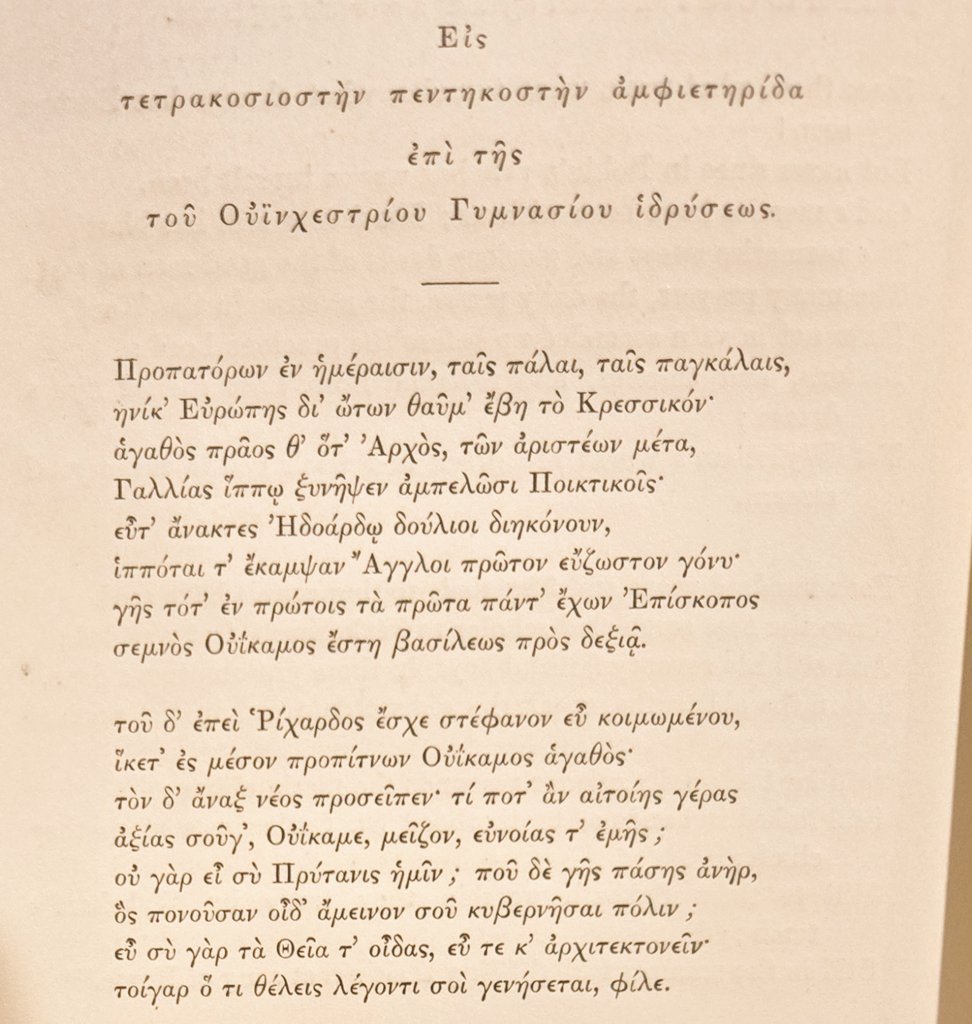 Εἰς
τετρακοσιοστὴν πεντηκοστὴν ἀμφιετηρίδα
ἐπὶ τῆς
τοῦ Οὐϊνχεστρίου Γυμνασίου ἱδρύσεως.
Προπατόρων ἐν ἡμέραισιν, ταῖς πάλαι, ταῖς παγκάλαις,
ηνίκ' Εὐρώπης δι' ὤτων θαῦμ' ἔβη τὸ Κρεσσικόν·
ἁγαθὸς πρᾶος θ' ὅτ' Ἀρχὸς, τῶν ἀριστέων μέτα,
Γαλλίας ἵππῳ ξυνῆψεν ἀμπελῶσι Ποικτικοῖς·
εὖτ' ἄνακτες Ἠδοάρδῳ δούλιοι διηκόνουν,
ἱππόται τ' ἔκαμψαν Ἄγγλοι πρῶτον εὔζωστον γόνυ·
γῆς τότ' ἐν πρώτοις τὰ πρῶτα πάντ' ἔχων Ἐπίσκοπος
σεμνὸς Οὐΐκαμος ἔστη βασίλεως πρὸς δεξιᾷ.
τοῦ δ' ἐπεὶ Ῥίχαρδος ἔσχε στέφανον εὖ κοιμωμένου,
ἵκετ' ἐς μέσον προπίτνων Οὐΐκαμος ἁγαθὸς·
τὸν δ' ἄναξ νέος προσεῖπεν· τί ποτ' ἂν αἰτοίης γέρας
ἀξίας σοῦγ', Οὐΐκαμε, μεῖζον, εὐνοίας τ' ἐμῆς ;
οὐ γὰρ εἶ σὺ Πρύτανις ἡμῖν ; ποῦ δὲ γῆς πάσης ἀνὴρ,
ὃς πονοῦσαν οἶδ' ἄμεινον σοῦ κυβερνῆσαι πόλιν ;
εὖ σὺ γὰρ τὰ Θεῖα τ' οἶδας, εὖ τε κ' ἀρχιτεκτονεῖν·
τοίγαρ ὅ τι θέλεις λέγοντι σοὶ γενήσεται, φίλε.